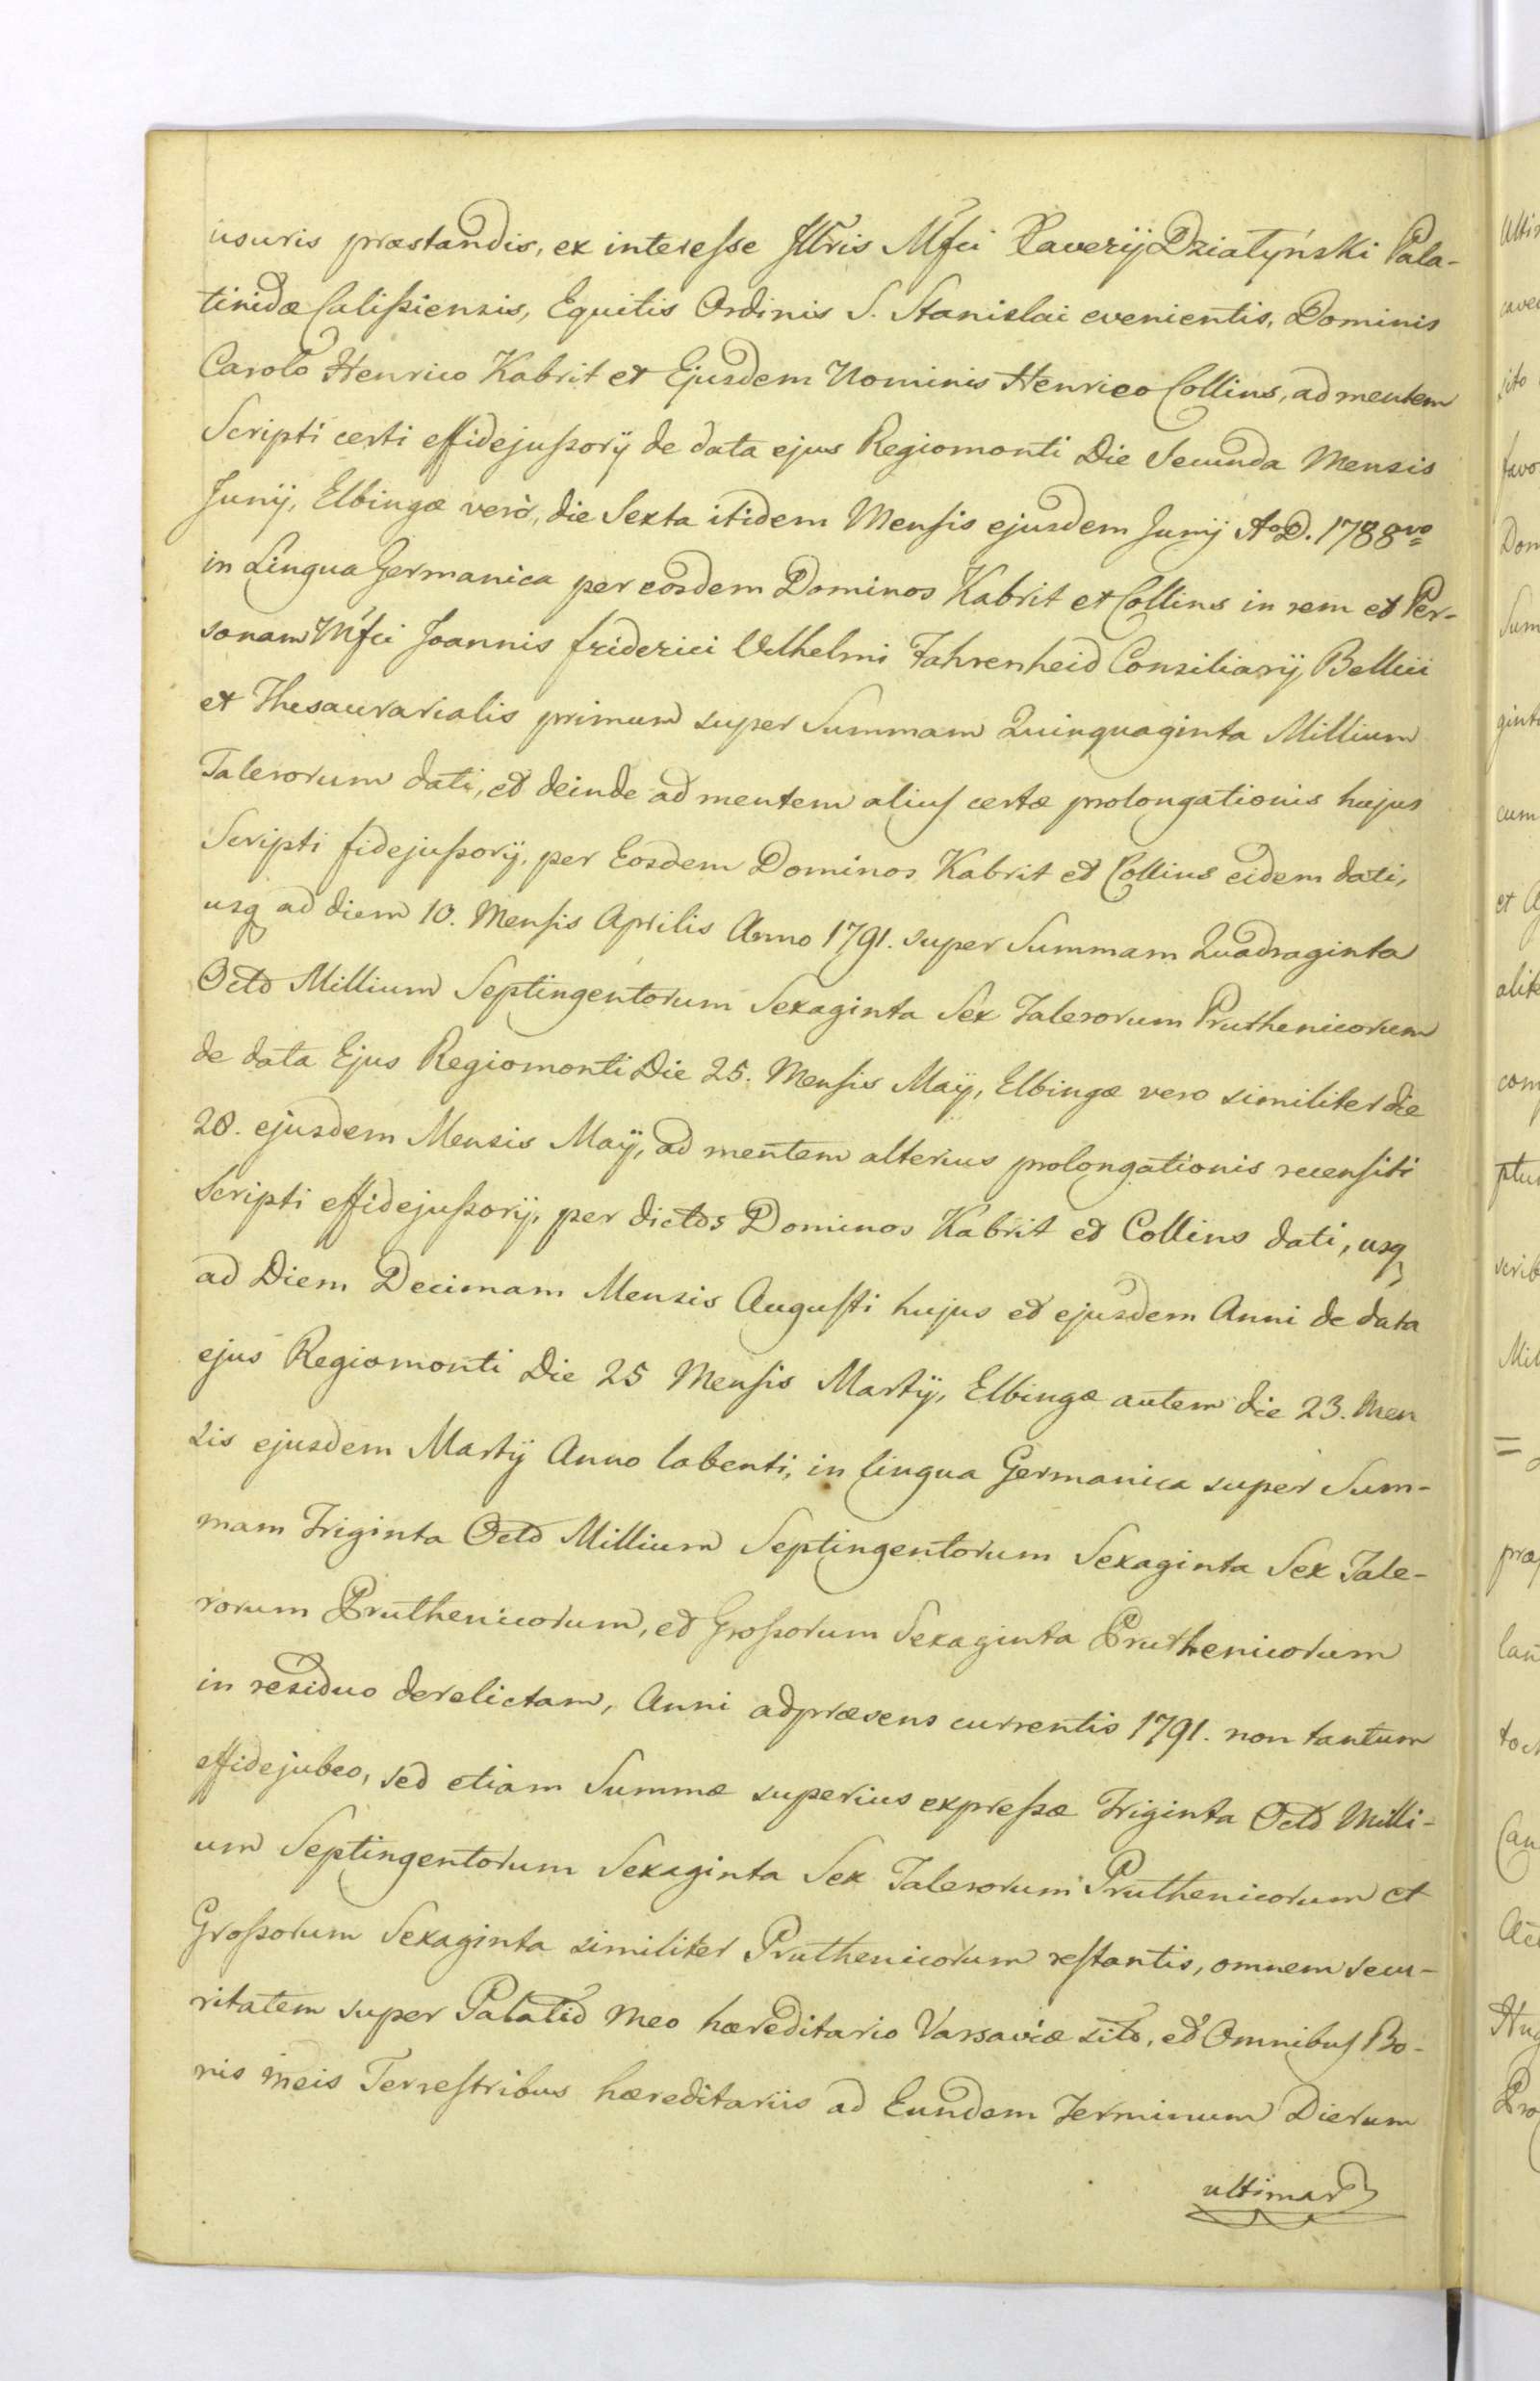 usuris præstandis, ex interesse Jllris Mfci Xaverÿ Działyński Pala-
tinidæ Calißiensis, Equitis Ordinis S. Stanislai evenientis, Dominis
Carolo Henrico Kabrit et Ejusdem Nominis Henrico Collins, ad mentem
Scripti certi effidejußorÿ de data ejus Regiomonti Die Secunda Mensis
Junÿ, Elbingæ verò, die Sexta itidem Mensis ejusdem Junÿ Ao D. 1788vo
in Lingua Germanica per eosdem Dominos Kabrit et Collins in rem et Per-
sonam Mfci Joannis Friderici Vilhelmi Fahrenheid Consiliarÿ Bellici
et Thesaurarialis primum super Summam Quinquaginta Millium
Talerorum dati, et deinde ad mentem alius certæ prolongationis hujus
Scripti fidejußorÿ, per Eosdem Dominos Kabrit et Collins eidem dati,
usq ad diem 10. Mensis Aprilis Anno 1791. super Summam Quadraginta
Octo Millium Septingentorum Sexaginta Sex Talerorum Pruthenicorum
de data Ejus Regiomonti Die 25. Mensis Maÿ, Elbingæ vero similiter die
28. ejusdem Mensis Maÿ, ad mentem alterius prolongationis recensiti
Scripti effidejußorÿ, per dictos Dominos Kabrit et Collins dati, usq
ad Diem Decimam Mensis Augusti hujus et ejusdem Anni de data
ejus Regiomonti Die 25 Mensis Martÿ, Elbingæ autem die 23. Men
sis ejusdem Martÿ Anno labenti, in lingua Germanica super Sum-
mam Triginta Octo Millium Septingentorum Sexaginta Sex Tale-
rorum Pruthenicorum, et Großorum Sexaginta Pruthenicorum
in residuo derelictam, Anni adpræsens currentis 1791. non tantum
effidejubeo, sed etiam Summæ superius expreßæ Triginta Octo Milli-
um Septingentorum Sexaginta Sex Talerorum Pruthenicorum et
Großorum Sexaginta similiter Pruthenicorum restantis, omnem secu-
ritatem super Palatio meo hæreditario Varsaviæ sito, et Omnibus Bo-
nis meis Terrestribus hæreditariis ad Eundem Terminum Dierum
ultimar